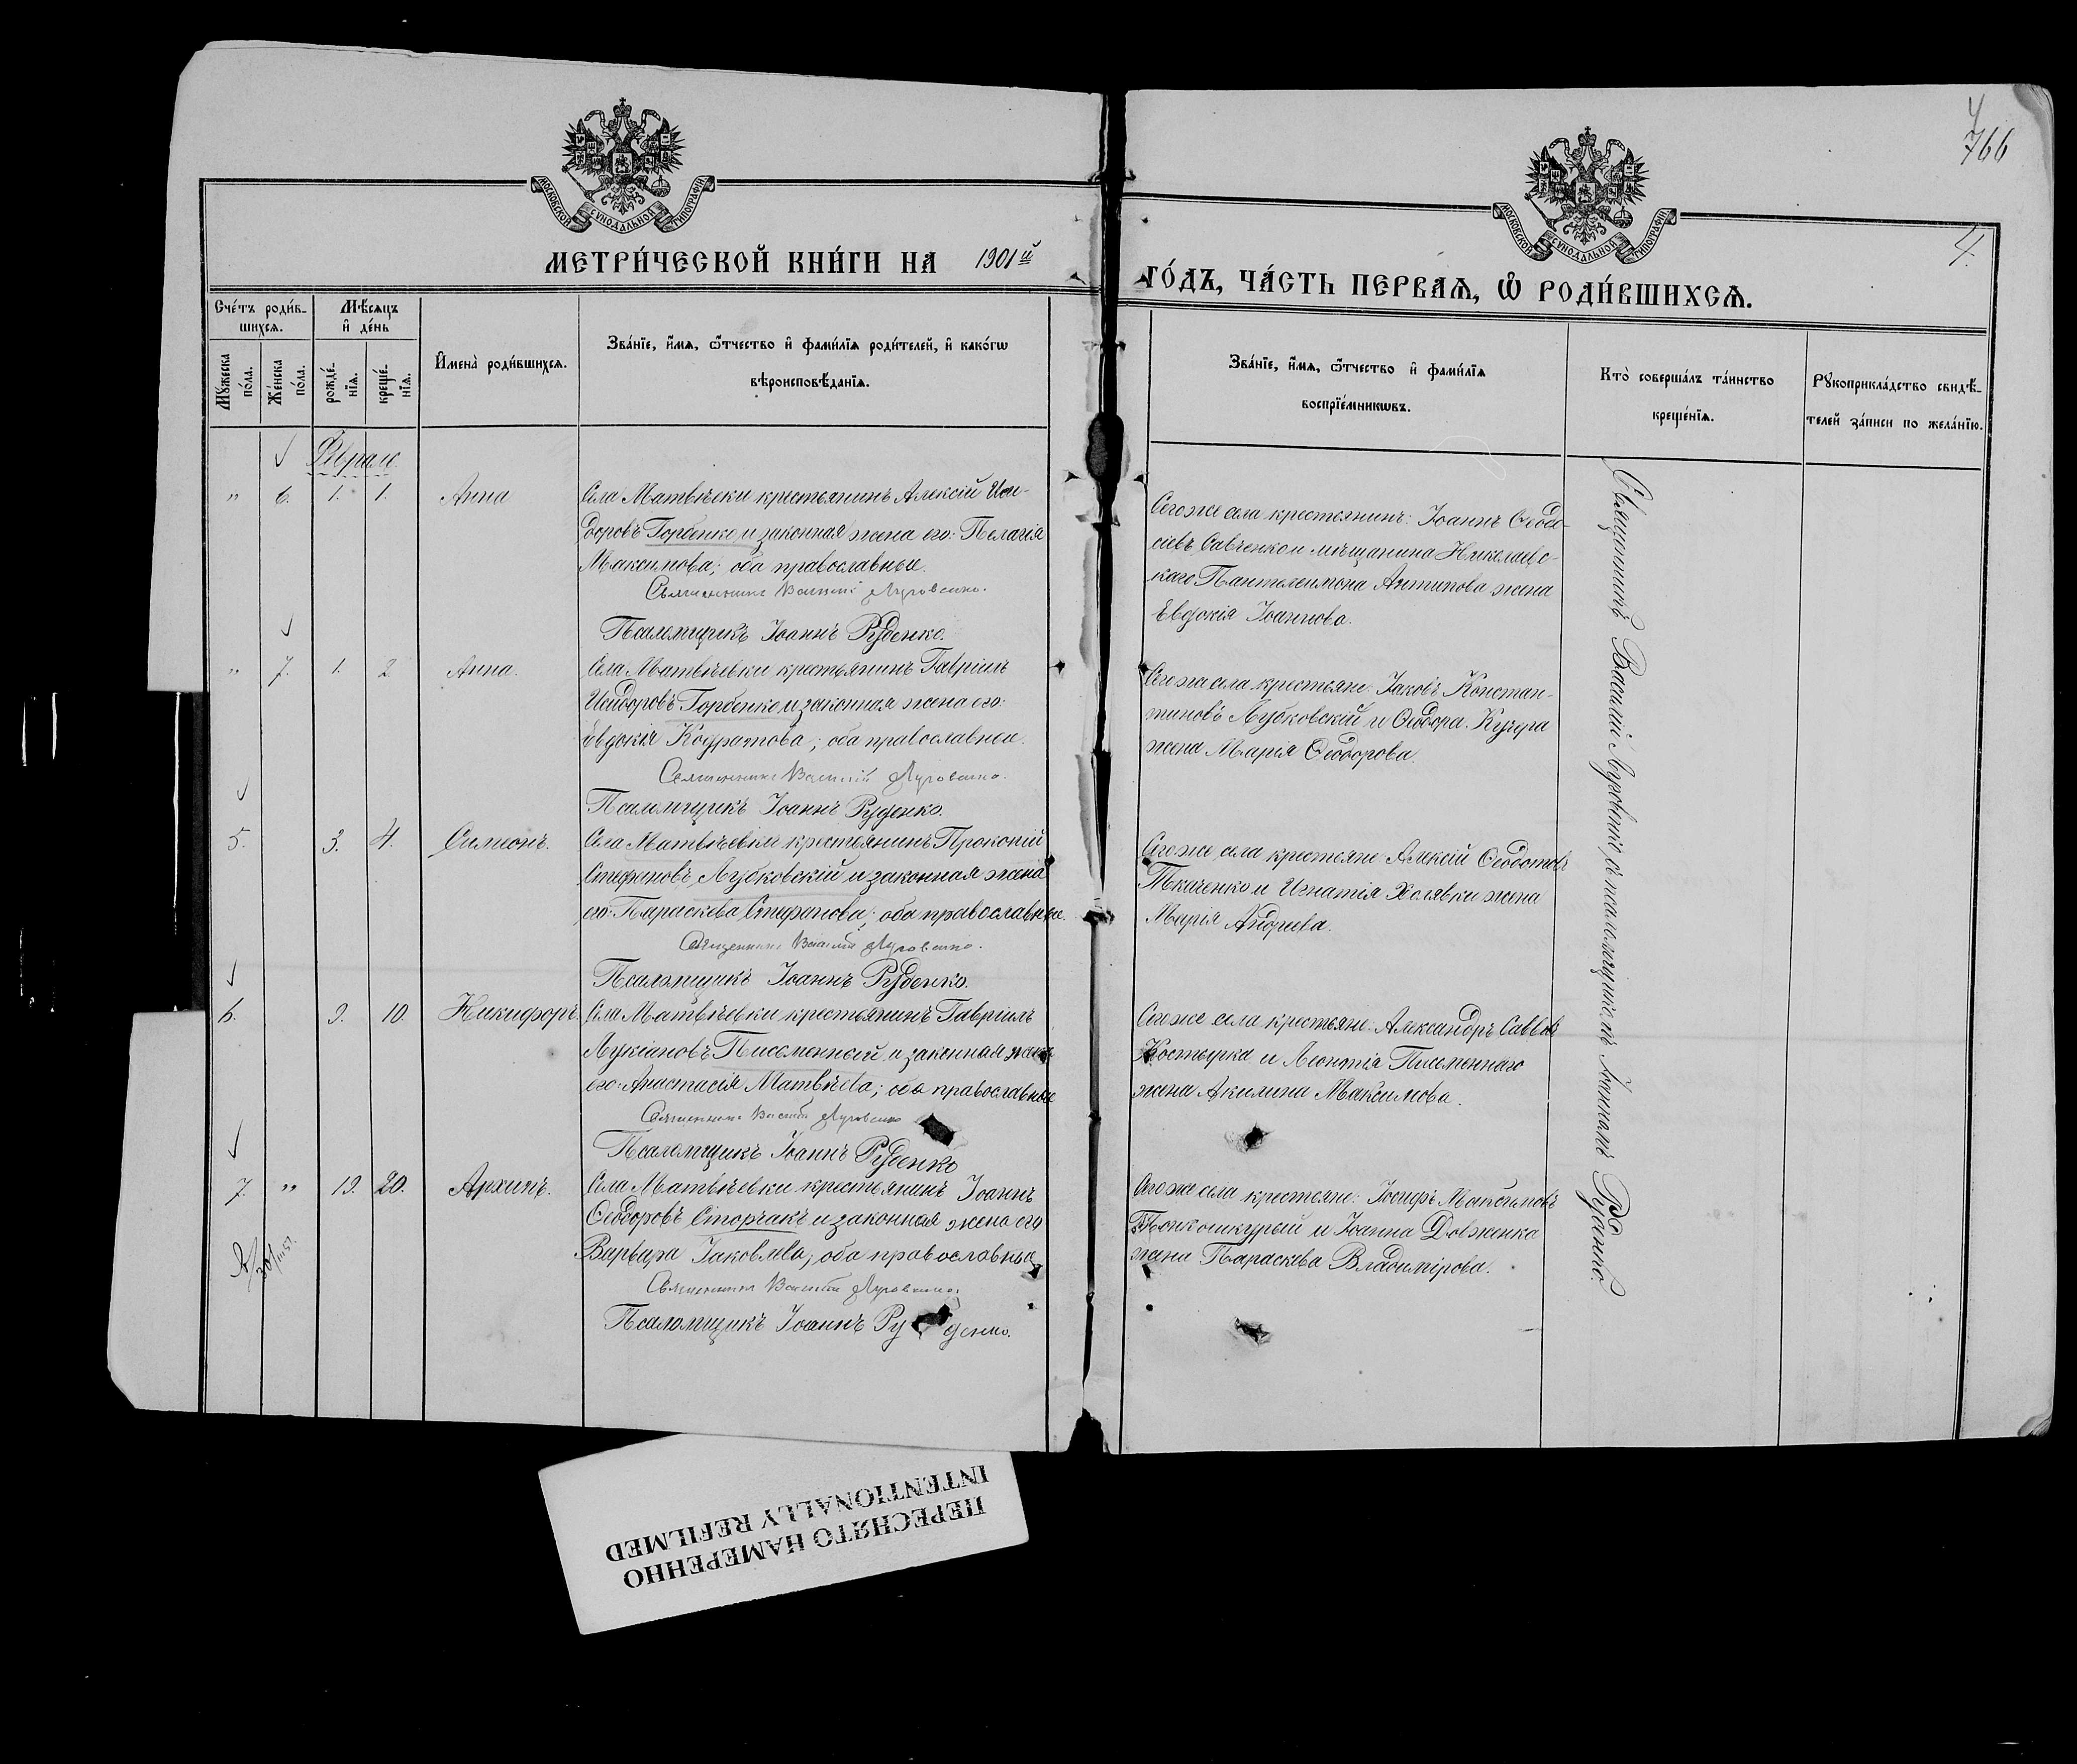 766
4.
МОСКОВСКОЙ СѴНОДАЛЬНОЙ ТИПОГРАФІИ
МОСКОВСКОЙ СѴНОДАЛЬНОЙ ТИПОГРАФІИ
МЕТРИ́ЧЕСКОЙ КНИ́ГИ НА 1901й
ГО́ДЪ, ЧА́СТЬ ПЕРВАѦ, Ѽ РОДИ́ВШИХСѦ.
Сче́тъ роди́в-
шихсѧ.
Мѣ́сѧцъ
и҆ де́нь
Мꙋ́жеска по́ла.
Же́нска по́ла.
рожде́-
нїѧ.
креще́-
нїѧ.
И҆мена̀ роди́вшихсѧ.
Зва́нїе, и҆́мѧ, ѻ҆́тчество и҆ фами́лїѧ роди́телей, и҆ како́гѡ
вѣроисповѣ́данїѧ.
Зва́нїе, и҆́мѧ, ѻ҆́тчество и҆ фами́лїѧ
воспрїе́мникѡвъ.
Кто̀ соверша́лъ та́инство
креще́нїѧ.
Рꙋкоприкла́дство свидѣ́-
телей за́писи по жела́нїю.
Февраль
" 6. 1. 1. Анна
Села Матвѣевки крестьянинъ Алексій Иси-
доровъ Горбенко и законная жена его: Пелагія
Максимова; оба православные.
Священникъ Василій Луговенко.
Псаломщикъ Іоаннъ Руденко.
Сего же села крестьянинъ: Іоаннъ Ѳеодо-
сіевъ Савченко и мѣщанина Николаевс-
каго Пантелеимона Антипова жена
Евдокія Іоаннова.
" 7. 1. 2 Анна.
Села Матвѣевки крестьянинъ Гавріилъ
Исидоровъ Горбенко и законная жена его:
Евдокія Кодратова; оба православные.
Священникъ Василій Луговенко.
Псаломщикъ Іоаннъ Руденко.
Сего же села крестьяне: Іаковъ Констан-
тиновъ Лубковскій и Ѳеодора Кучера
жена Марія Ѳеодорова.
5. 3. 4. Симеонъ.
Села Матвѣевки крестьянинъ Прокопій
Стефановъ Лубковскій и законная жена
его: Параскева Стефанова; оба православные.
Священникъ Василій Луговенко.
Псаломщикъ Іоаннъ Руденко.
Сего же села крестьяне Алексій Ѳеодотовъ
Ткаченко и Игнатія Холявки жена
Марія Андреева.
6. 9. 10. Никифоръ.
Села Матвѣевки крестьянинъ Гавріилъ
Лукіановъ Письменный и законная жена
его: Анастасія Матвѣева; оба православные
Священникъ Василій Луговенко
Псаломщикъ Іоаннъ Руденко
Сего же села крестьяне: Александръ Саввовъ
Костырка и Леонтія Письменнаго
жена Акилина Максимова.
7. " 19. 20. Архипъ.
Села Матвѣевки крестьянинъ Іоаннъ
Ѳеодоровъ Сторчакъ и законная жена его
Варвара Іаковлева; оба православные
Священникъ Василій Луговенко.
Псаломщикъ Іоаннъ Руденко.
Сего же села крестьяне: Іосифъ Максимовъ
Тонкошкурый и Іоанна Довженка
жена Параскева Владимірова.
Священникъ Василій Луговенко съ псаломщикомъ Іоанномъ Руденко.
ПЕРЕСНЯТО НАМЕРЕННО
INTENTIONALLY REFILMED